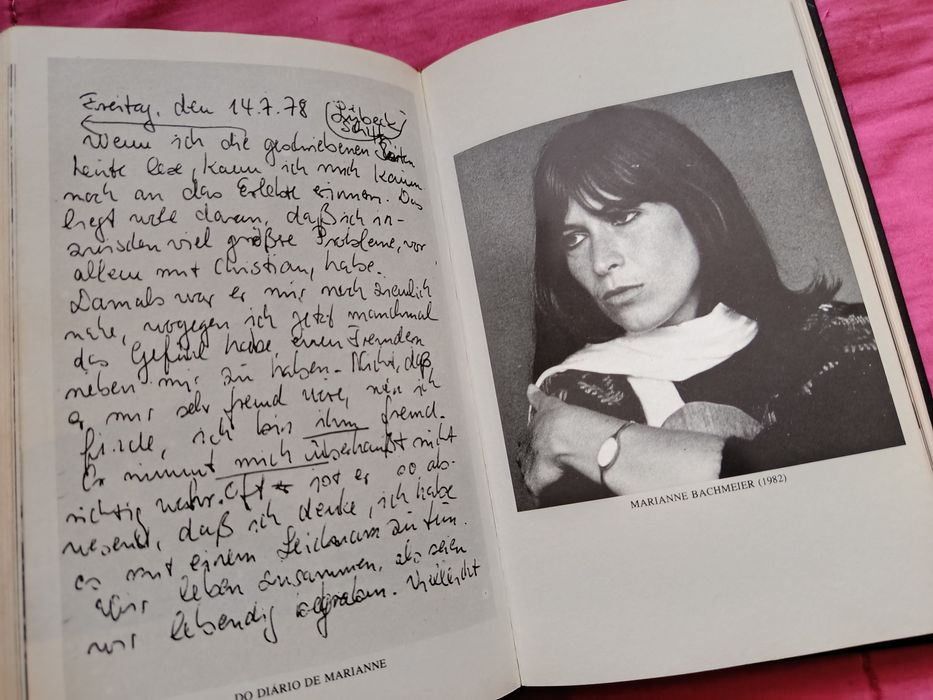 Freitag, den 14.7.78 (Lübeck Schiff)
Wenn ich die geschriebenen Seiten
heute lese, kann ich mich kaum
noch an das Erlebte erinnern. Das
liegt wohl daran, daß ich in-
zwischen viel größre Probleme, vor
allem mit Christian, habe.
Damals war er mir noch ziemlich
nahe, wogegen ich jetzt manchmal
das Gefühl habe, einen Fremden
neben mir zu haben. Nicht, daß
er mir sehr fremd wäre, nein ich
finde, ich bin ihm fremd.
Er nimmt mich überhaupt nicht
richtig wahr. Oft ist er so ab-
wesend, daß ich denke, ich habe
es mit einem Leichnam zu tun.
Wir leben zusammen, als seien
wir lebendig begraben. Vielleicht
DO DIÁRIO DE MARIANNE
MARIANNE BACHMEIER (1982)